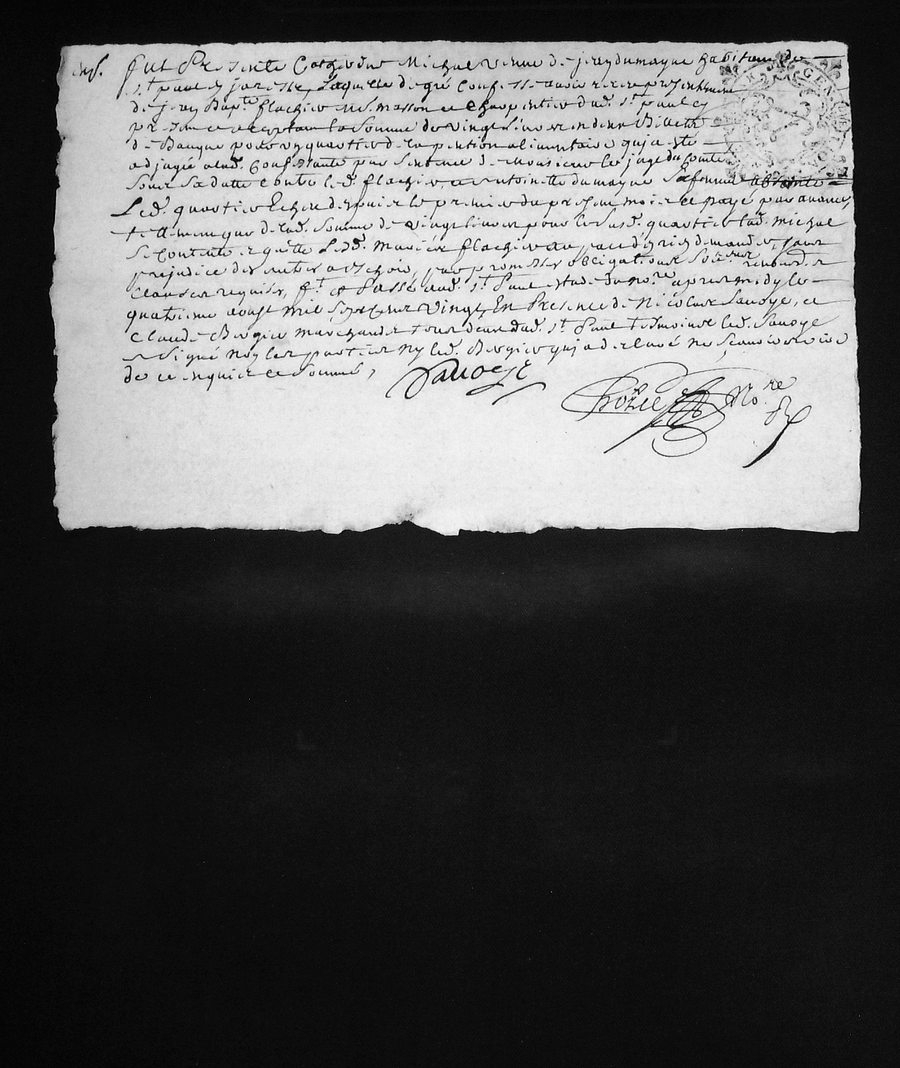 fut Presente Catherine Michel veuve de jean dumayne habitante de
st paul en jarestz, Laquelle de gré confesse avoir receu presentement
de jean Bapte flachier me masson et charpentier dud. st paul cy
present et acceptant la somme de vingt Livres en deux Billets
de Banque pour un quartier de la pention alimentaire qui a esté
adjugée a lad. Confessante par sentence de monsieur le juge du
sous sa datte contre led. flachier, et antoinette dumayne sa femme absante
Led. quartier Echeu depuis le premier du present mois et payé par avance,
tellement que de lad. somme de vingt livres pour le susd. quartier lad. michel
se contente et quitte Led. flachier au pact d'y rien demander, sans
prejudice des autres a Eschoir, par promesses obligations
clauses requises, ft. et Passé aud. st Paul Estude du nore apres midy le
quatrieme aoust mil sept cent vingt En Presence de Nicolas Savoye, et
Claude Bergier marchands tous deux dud. st Paul temoins led. Savoye
a signé non les parties ny led. Bergier qui a declaré ne scavoir
de ce enquis et sommé,
Savoye
Nore